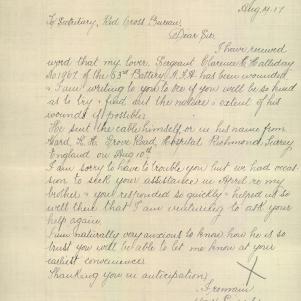 Aug 14.17
To Secretary, Red Cross Bureau,
Dear Sir
I have received
word that my lover, Sergeant Clarence Halliday
No 1967 of the 53rd Battery A.I.F. has been wounded
I am writing to you to see if you will be so kind
as to try & find out the nature & extent of his
wounds if possible.
He sent the cable himself or in his name from
Ward, Grove Road, Hospital Richmond, Surrey
England on Aug 10th
I am sorry to have to trouble you but we had occa-
sion to seek your assistance in April re my
brother & you responded so quickly & helped us so
well then that I am venturing to ask your
help again.
I am naturally very anxious to know how he is so
trust you will be able to let me know at your
earliest convenience
Thanking you in anticipation,
I remain